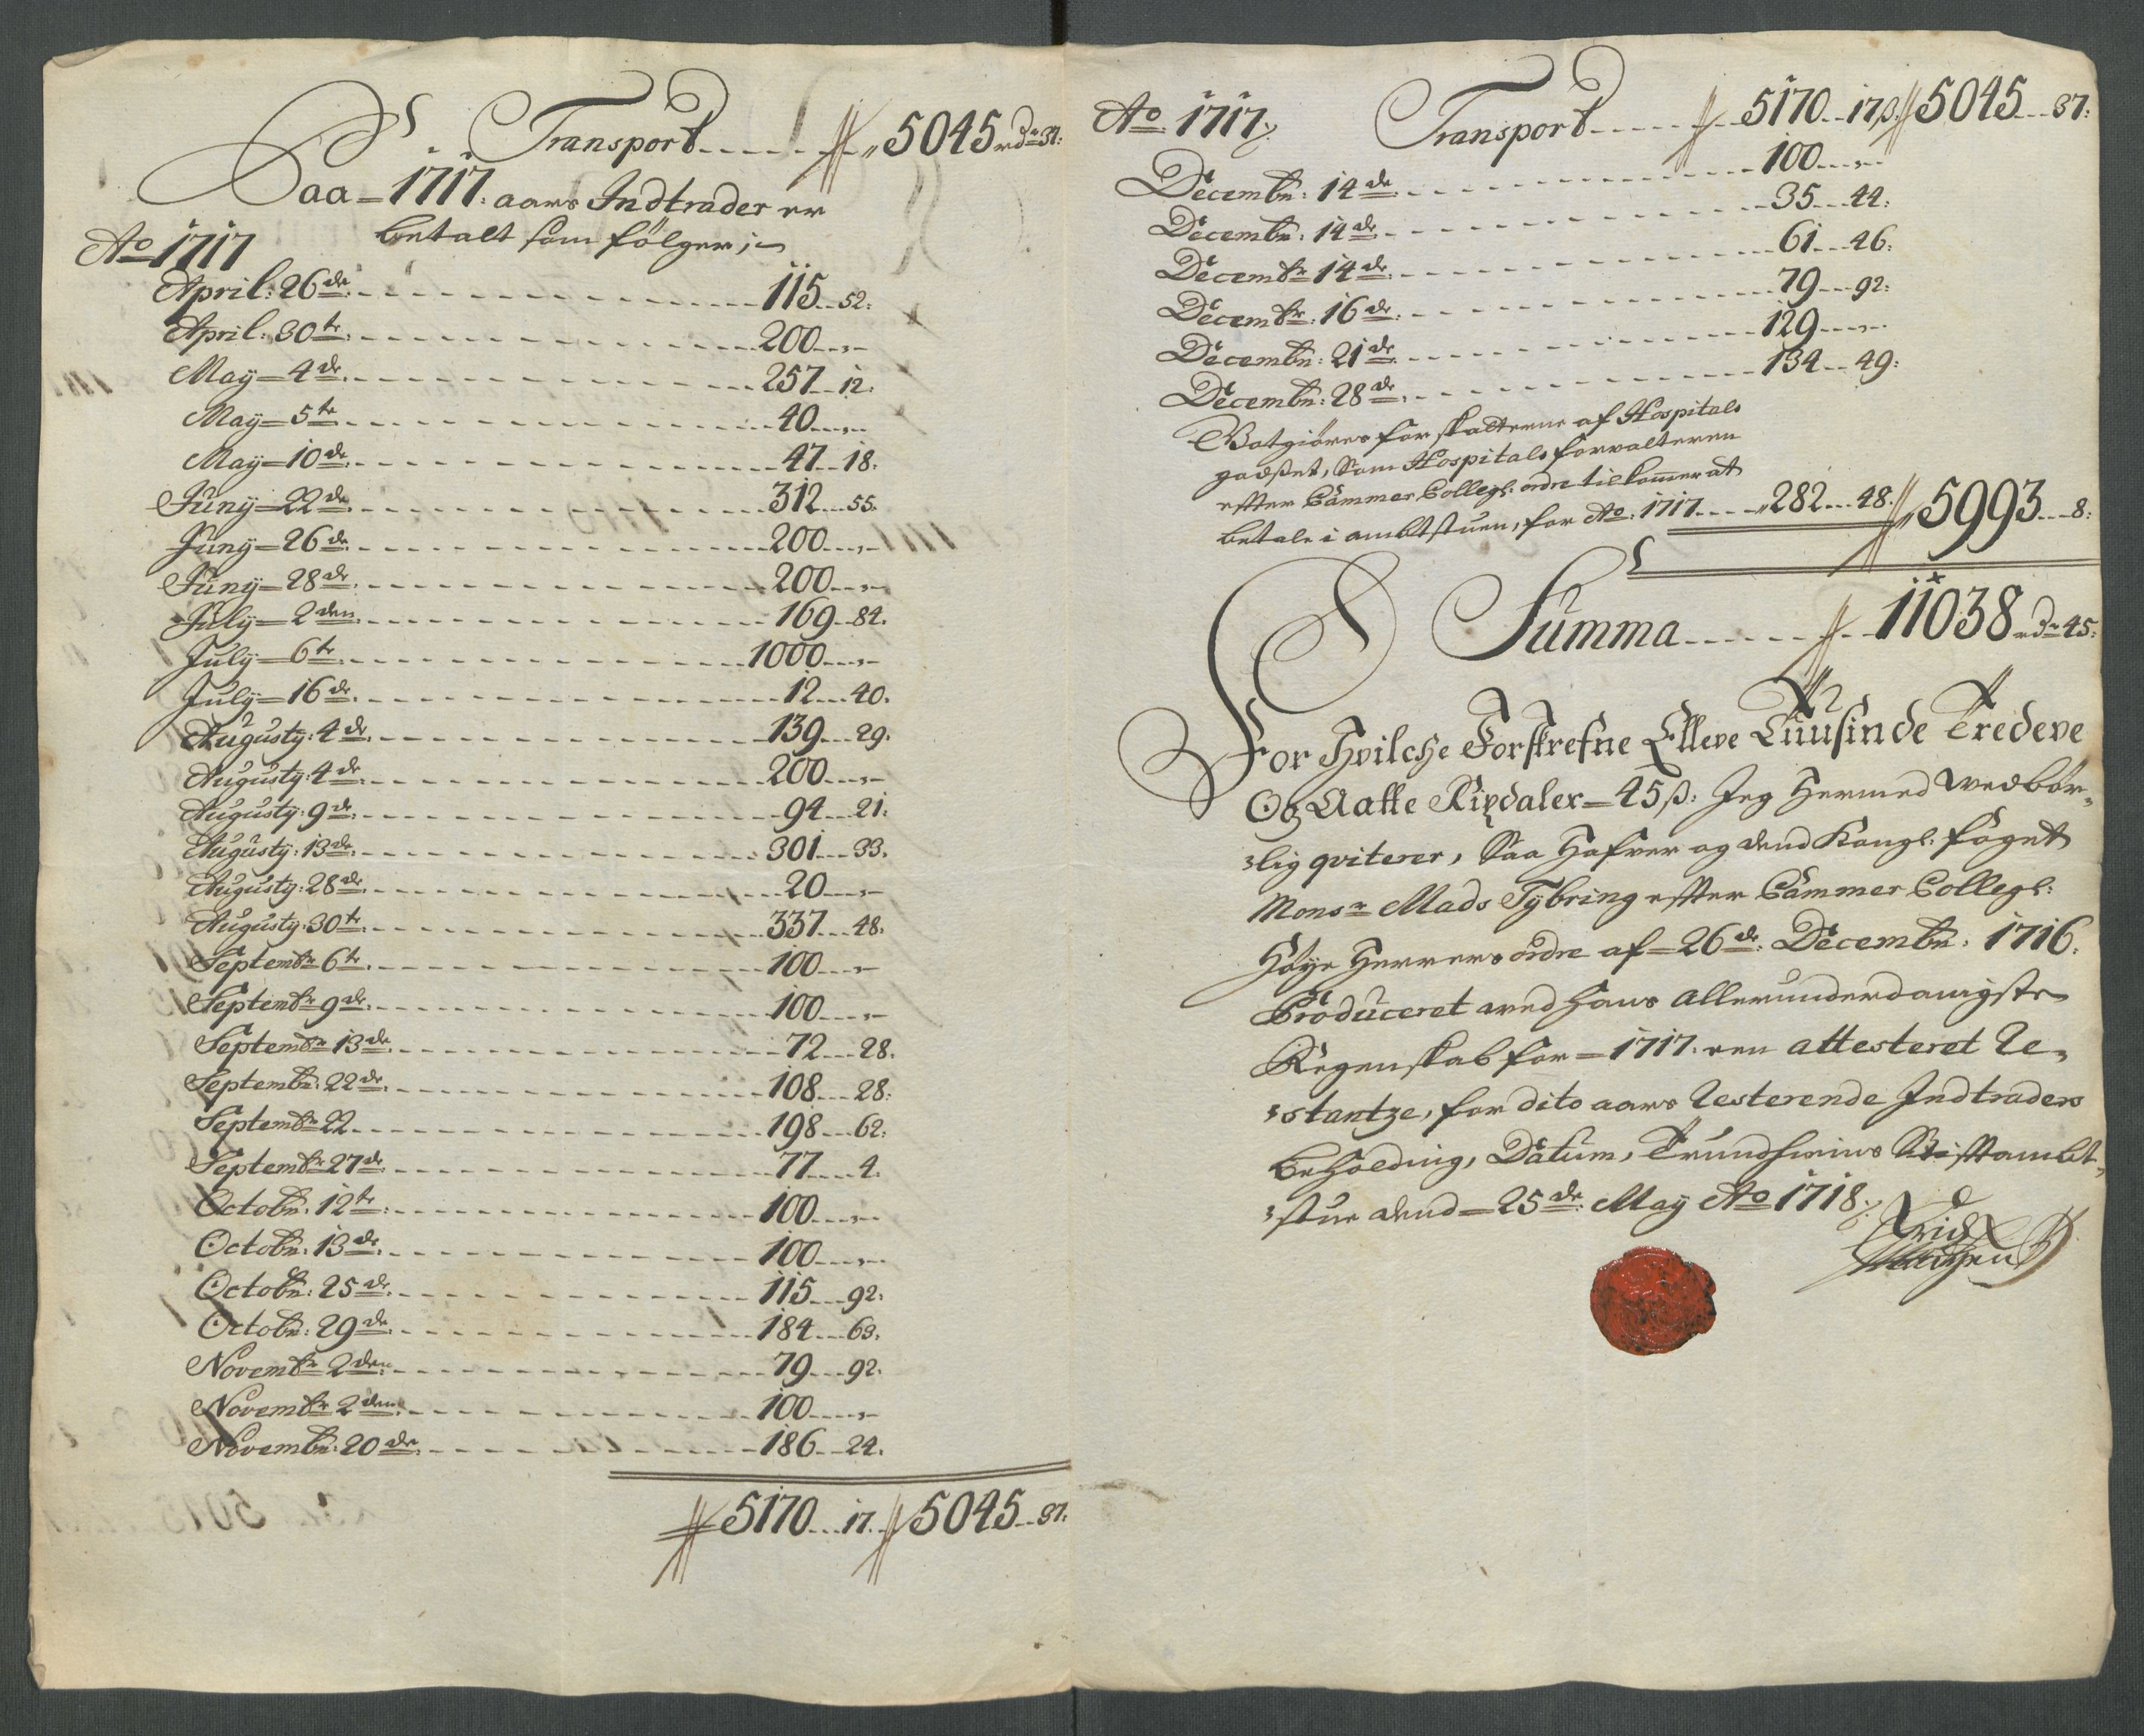 Transport 5045 rdr 37:
Paa 1717: aars Indtrader er
betalt som følger:
Ao 1717
April: 26de 115 52:
April: 30te 200 "
May 4de 257 12:
May 5te 40 "
May 10de 47 18:
Juny 22de 312 55:
Juny 26de 200 "
Juny 28de 200 "
July 2den 169 84.
July 6te 1000 "
July 16de 12 40.
Augusty: 4de 139 29.
Augusty: 4de 200 "
Augusty: 9de 94 21:
Augusty: 13de 301 33.
Augusty: 28de 20 "
Augusty: 30te 337 48.
Septembr 6te 100 "
Septembr 9de 100 "
Septembr 13de 72 28.
Septembr: 22de 108 28:
Septembr 22 198 62:
Septembr 27de 77 4.
Octobr: 12te 100 "
Octobr: 13de 100 "
Octobr: 25de 115 92:
Octobr: 29de 184 63.
Novembr 2den 79 92.
Novembr 2den 100 "
Novembr: 20de 186 24.
5170 17 5045 37:
Ao 1717 Transport 5170 17ß 5045 37:
Decembr: 14de 100 "
Decembr: 14de 35 44:
Decembr 14de 61 46:
Decembr: 16de 79 92:
Decembr: 21de 129 "
Decembr: 28de 134 49:
Godtgiøres for skatterne af Hospitals
godset, Som Hospitals forvalteren
efter Cammer Collegi ordre tilkommer at
betale i ambtstuen, for Ao: 1717 282 48 5993 8:
Summa 11038 rdr 45:
For Hvilche Forskrefne Elleve Tuusinde Tredeve
Og Aatte Rixdaler 45ß: Jeg Hermed wedbør-
lig qviterer, Saa Hafver og dend Kongl: foget
Monsr Mads Tybring efter Cammer Collegi:
Høye Herrers ordre af 26de: Decembr: 1716.
Produceret med hans allerunderdanigste
Regenskab for 1717. een attesteret Re-
stantze, for dito aars Resterende Indtraders
beholding, Datum, Trundhiems Stiftambt-
stue dend 25de: May Ao 1718